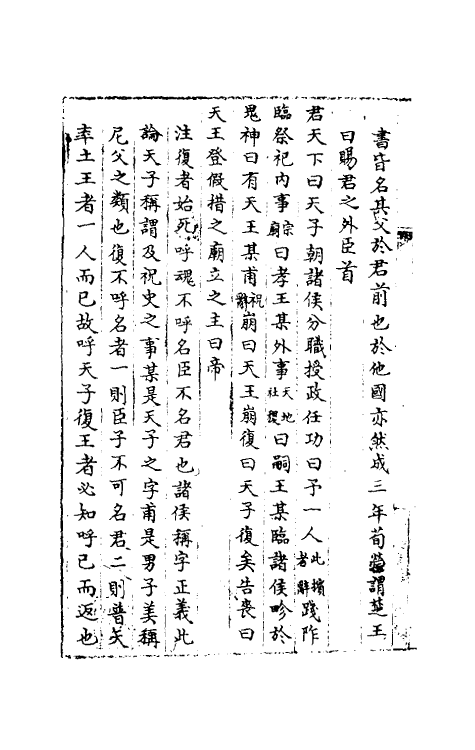 書皆名其父於君前也於他國亦然成三年荀罃謂楚王
曰賜君之外臣首
君天下曰天子朝諸侯分職授政任功曰予一人此擯者辭踐阼
臨祭祀內事宗廟曰孝王某外事天地社稷曰嗣王某臨諸侯畛於
鬼神曰有天王某甫祝辭崩曰天王崩復曰天子復矣告喪曰
天王登假措之廟立之主曰帝
注復者始死呼魂不呼名臣不名君也諸侯稱字正義此
論天子稱謂及祝史之事某是天子之字甫是男子美稱
尼父之類也復不呼名者一則臣子不可名君二則普天
率土王者一人而已故呼天子復王者必知呼已而返也